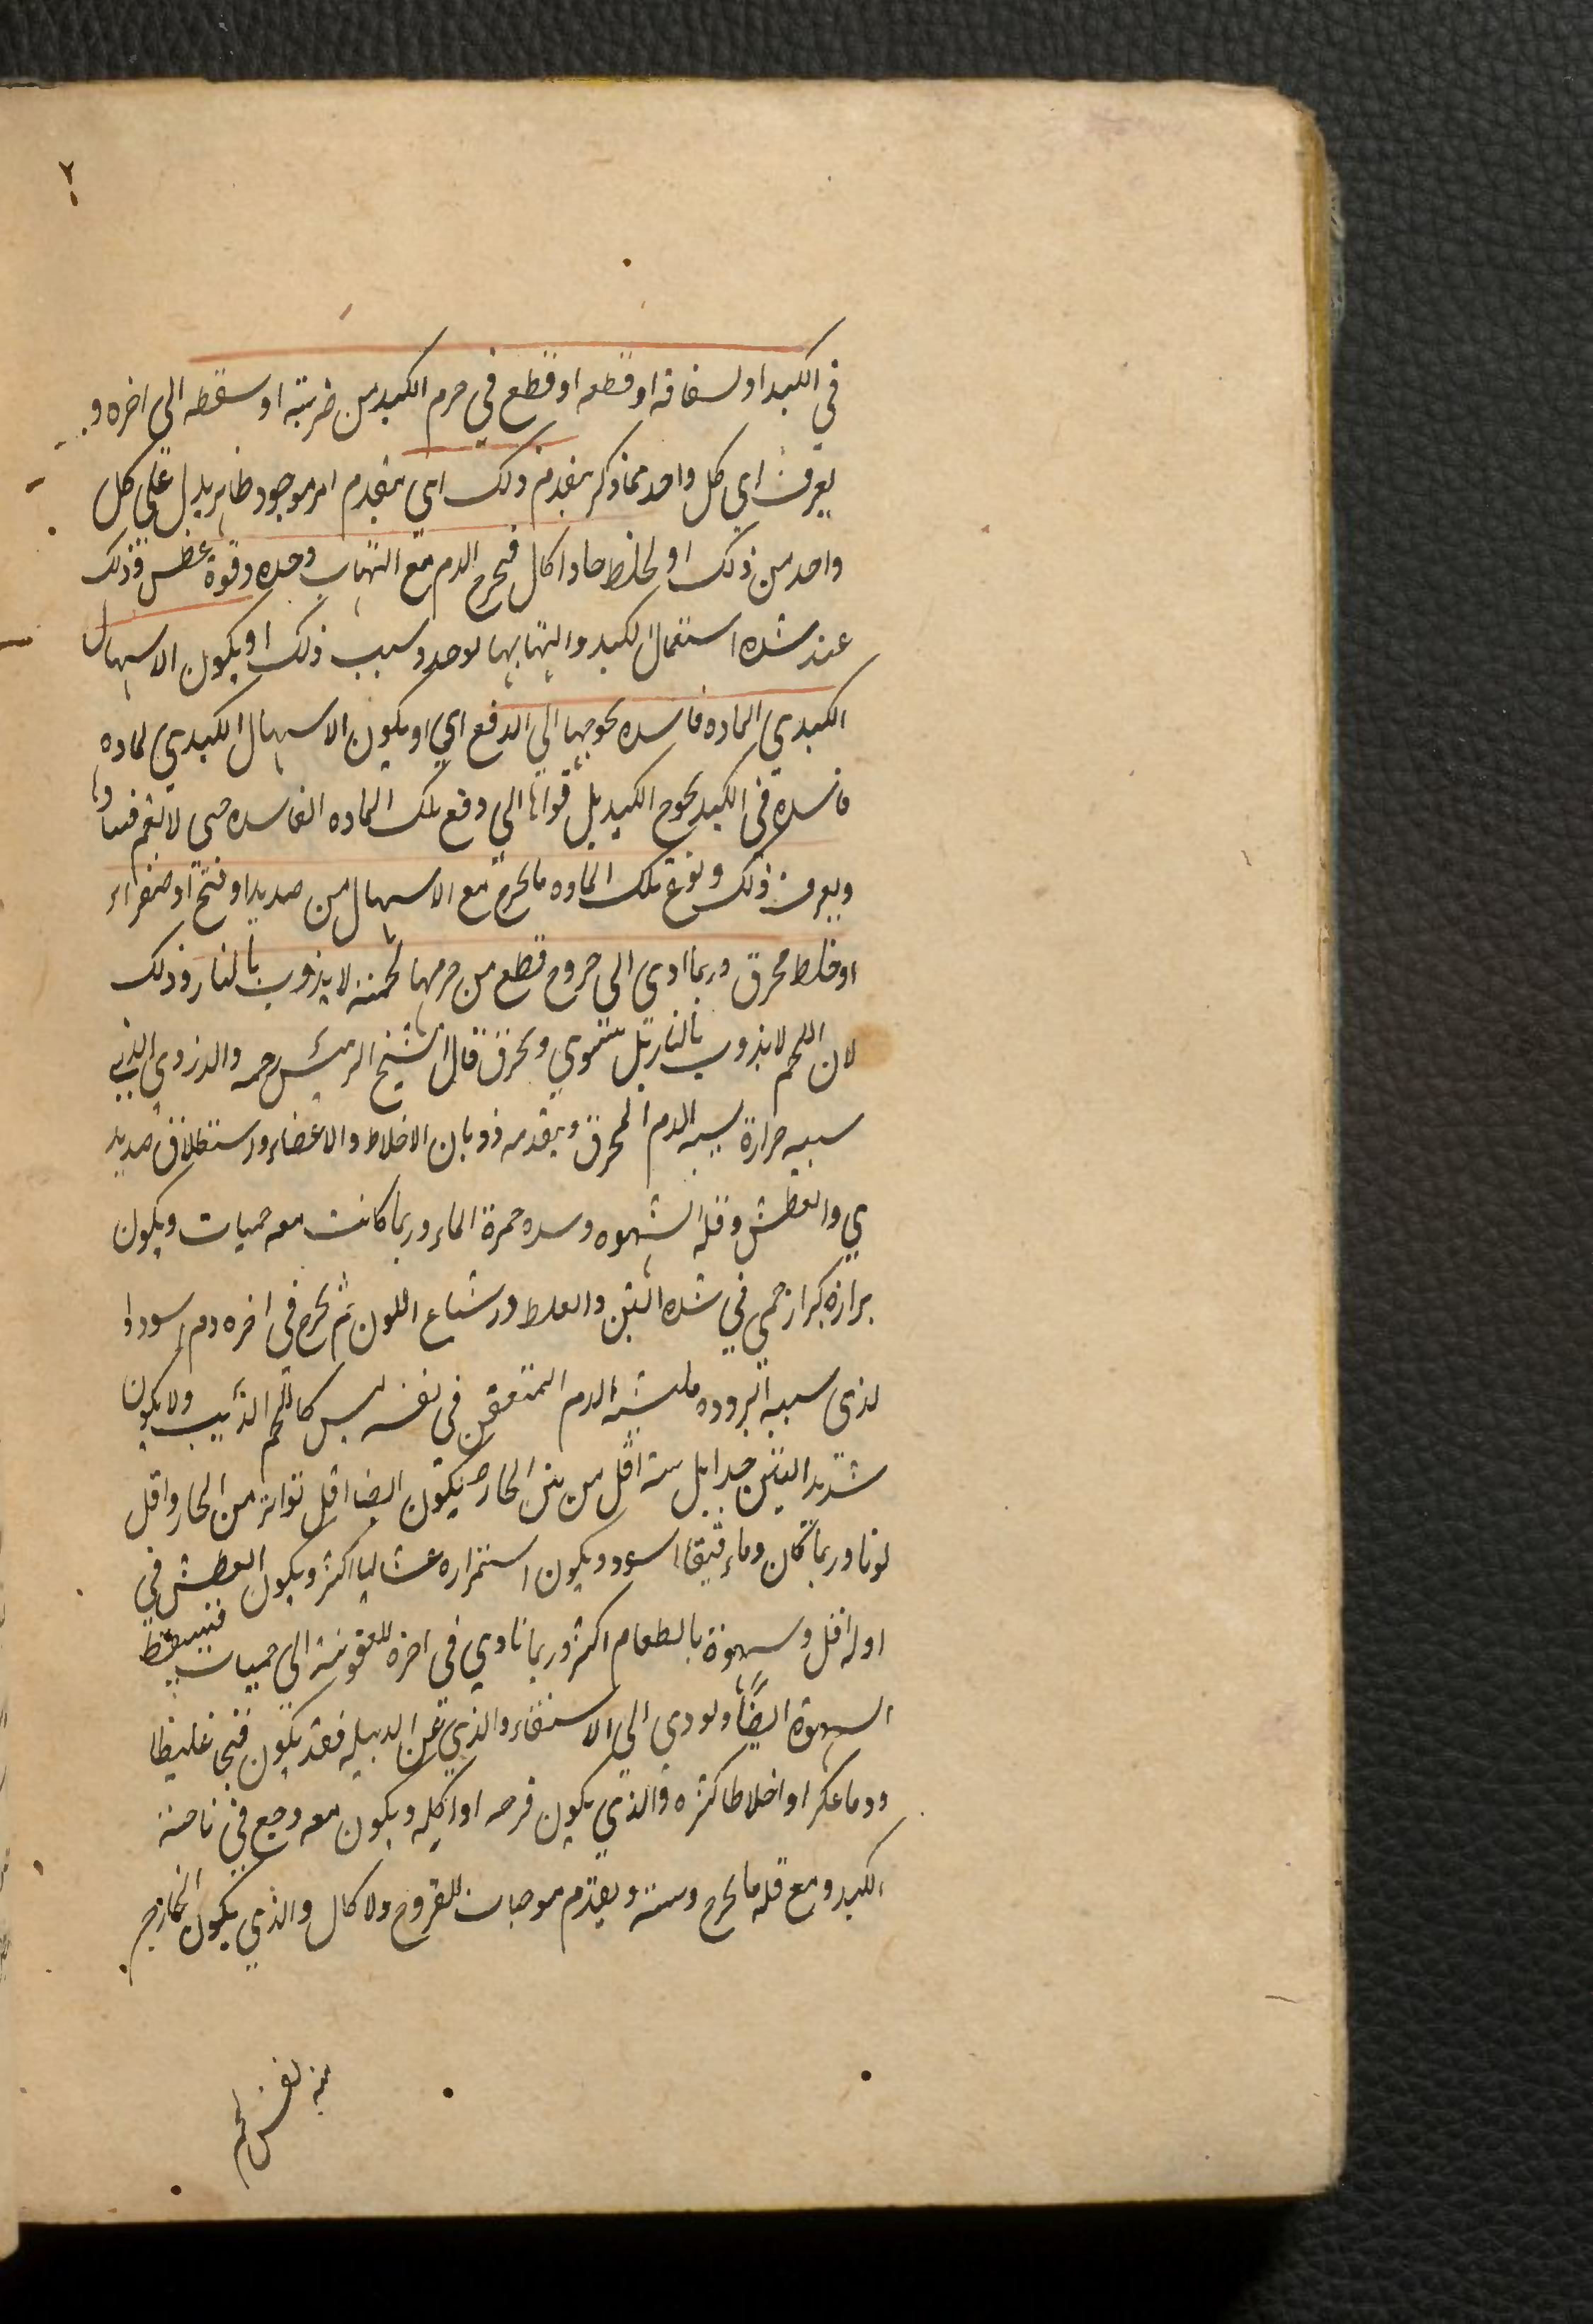 ٢
في الكبد او لسقافه او قطعه او قطع في جرم الكبد من ضربته او سقطه الى اخره و
يعرف اي كل واحد مما ذكر بتقدم ذلك اي بتقدم امر موجود ظاهر يدل على كل
واحد من ذلك او لخلط حاد اكال فيخرج الدم مع التهاب وحده وقوة عطس وذلك
عند شده استعمال الكبد والتهابها لوحدد سبب ذلك او يكون الاسهال
الكبدي لماده فاسده تحوجها الى الدفع اي او يكون الاسهال الكبدي لماده
فاسده في الكبد تحوج الكبد بل قواها الى دفع تلك الماده الفاسده حتى لا تقم فيها
ويعرف ذلك ونوع تلك الماده ما يخرج مع الاسهال من صديد او قيح او صفراء
او خلط محرق وربما ادى الى خروج قطع من جرمها لحمية لا يذوب بالنار وذلك
لان اللحم لا يذوب بالنار بل يشوي ويحرق قال الشيخ الرئيس رحمه والدردوي الذي
سببه حرارة يشبه الدم المحرق ويتقدمه ذوبان الاخلاط والاعضاء واستطلاق صديد
ي والعطش وقلة الشهوه وسده حمرة الماء وربما كانت معه حميات ويكون
برازه كبراز حمي في شده النتن والغلط واشباع اللون ثم يخرج في اخره دم اسود وا
لذي سببه البروده فيشبه الدم المتعفن في نفسه ليس كاللحم الذايب ولا يكون
شديد النتن جدا بل نتنه اقل من نتن الحار ويكون ايضا اقل تواتر من الحار واقل
لونا وربما كان دما رقيقا اسود ويكون استمراره غساليا اكثر ويكون العطش في
اوله اقل وشهوة بالطعام اكثر وربما تادي في اخره للعفونة الى حميات فيسقط
الشهوة ايضًا ويودي الى الاستسقاء والذي عن الدبيله فقد يكون قيحا غليظا
ودما عكرا واخلاطا كثره والذي يكون قرحه او اكله ويكون معه وجع في ناحية
الكبد ومع قلة ما يخرج ونتنه ويتقدم موجبات للقروح والاكال والذي يكون الخارج
منه نفس لحم